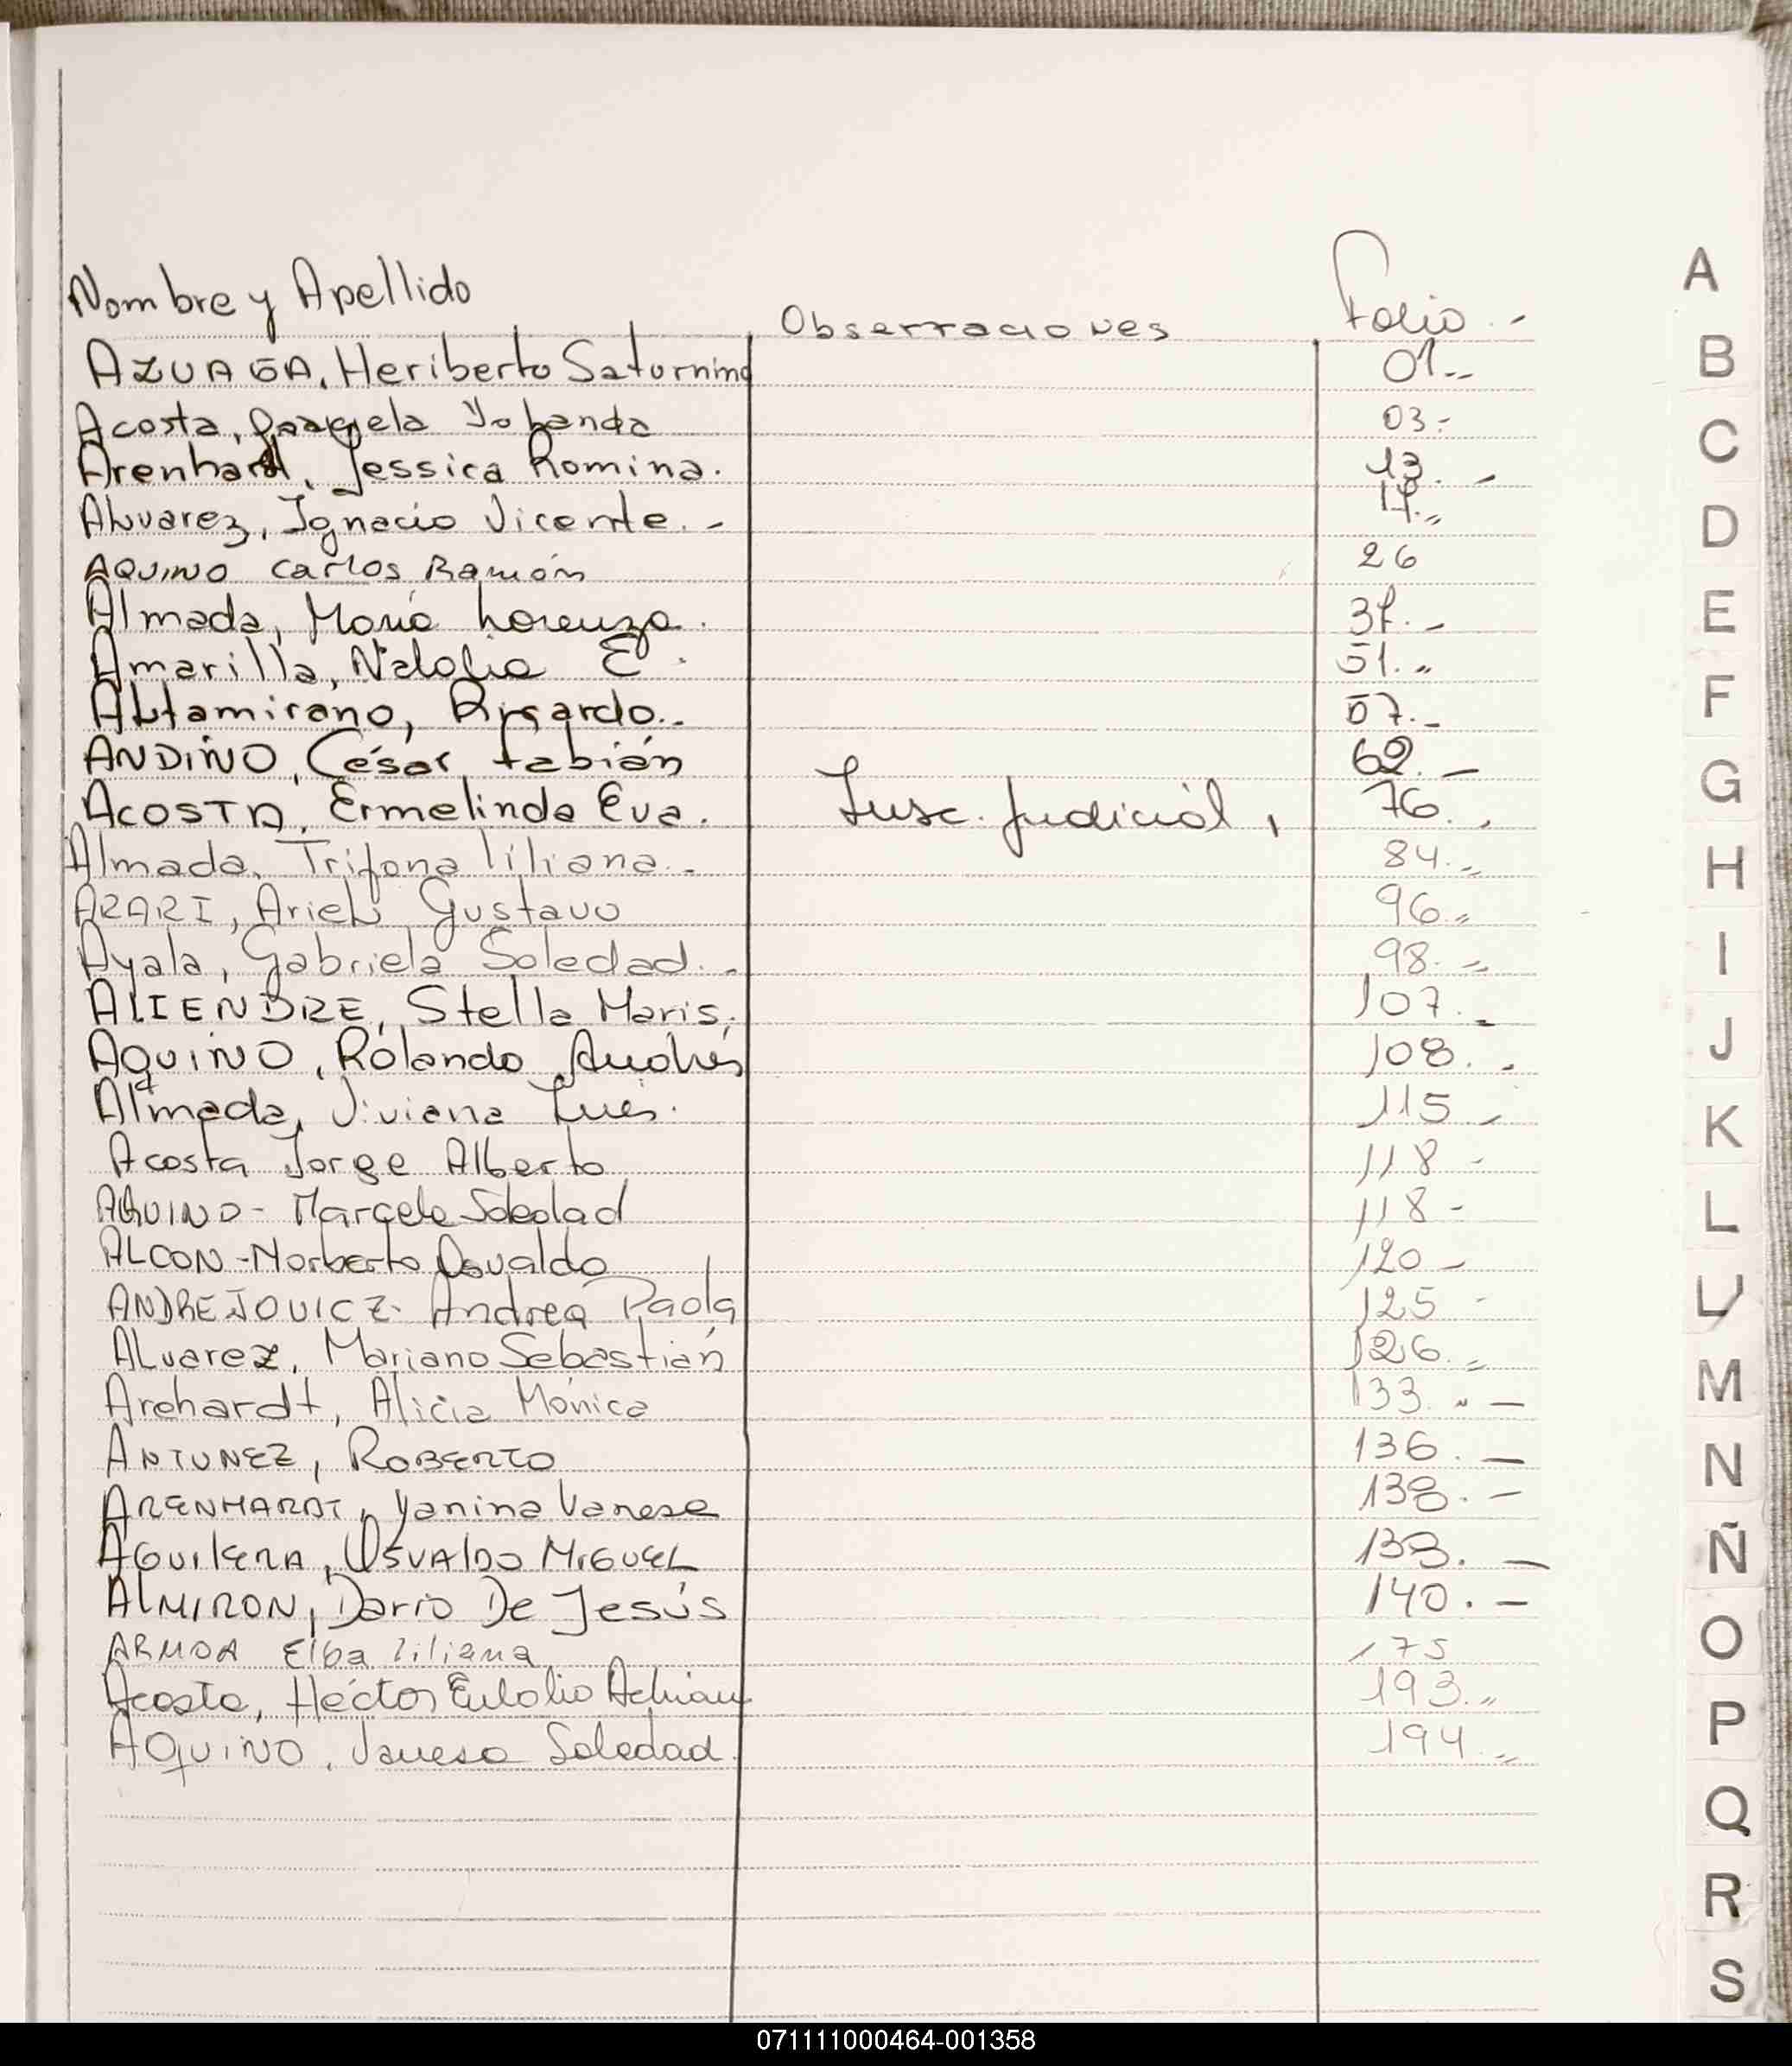 Nombre y Apellido Observaciones Folio.-
AZUAGA, Heriberto Saturnino 01.-
Acosta, Yolanda 03.-
Arenhardt, Jessica Romina. 13.-
Alvarez, Ignacio Vicente.- 17.-
AQUINO Carlos Ramón 26
Almada, María Lorenza. 37.-
Amarilla, Natalia E. 51.-
Altamirano, Ricardo.- 57.-
ANDINO, César Fabián 62.-
ACOSTA, Ermelinda Eva. Insc. Judicial, 76.-
Almada, Trifona liliana.- 84.-
ARARI, Ariel Gustavo 96.-
Ayala, Gabriela Soledad.- 98.-
ALIENDRE, Stella Maris. 107.-
AQUINO, Rolando Andrés 108.-
Almada, Viviana Inés. 115.-
Acosta Jorge Alberto 118-
AQUINO- Marcela Soledad 118-
ALCON-Norberto Osvaldo 120-
ANDREJOVICZ- Andrea Paola 125-
ALvarez, Mariano Sebastián 126.-
Arehardt, Alicia Mónica 133.-
ANTUNEZ, ROBERTO 136.-
ARENHARDT, Yanina Vanesa 138.-
AGUILERA, OSVALDO MIGUEL 139.-
ALMIRON, Dario De Jesús 140.-
ARMOA Elba liliana 175
Acosta, Héctor Eulalio Adrian 193.-
AQUINO, Vanesa Soledad. 194.-
A
B
C
D
E
F
G
H
I
J
K
L
M
N
Ñ
O
P
Q
R
S
071111000464-001358